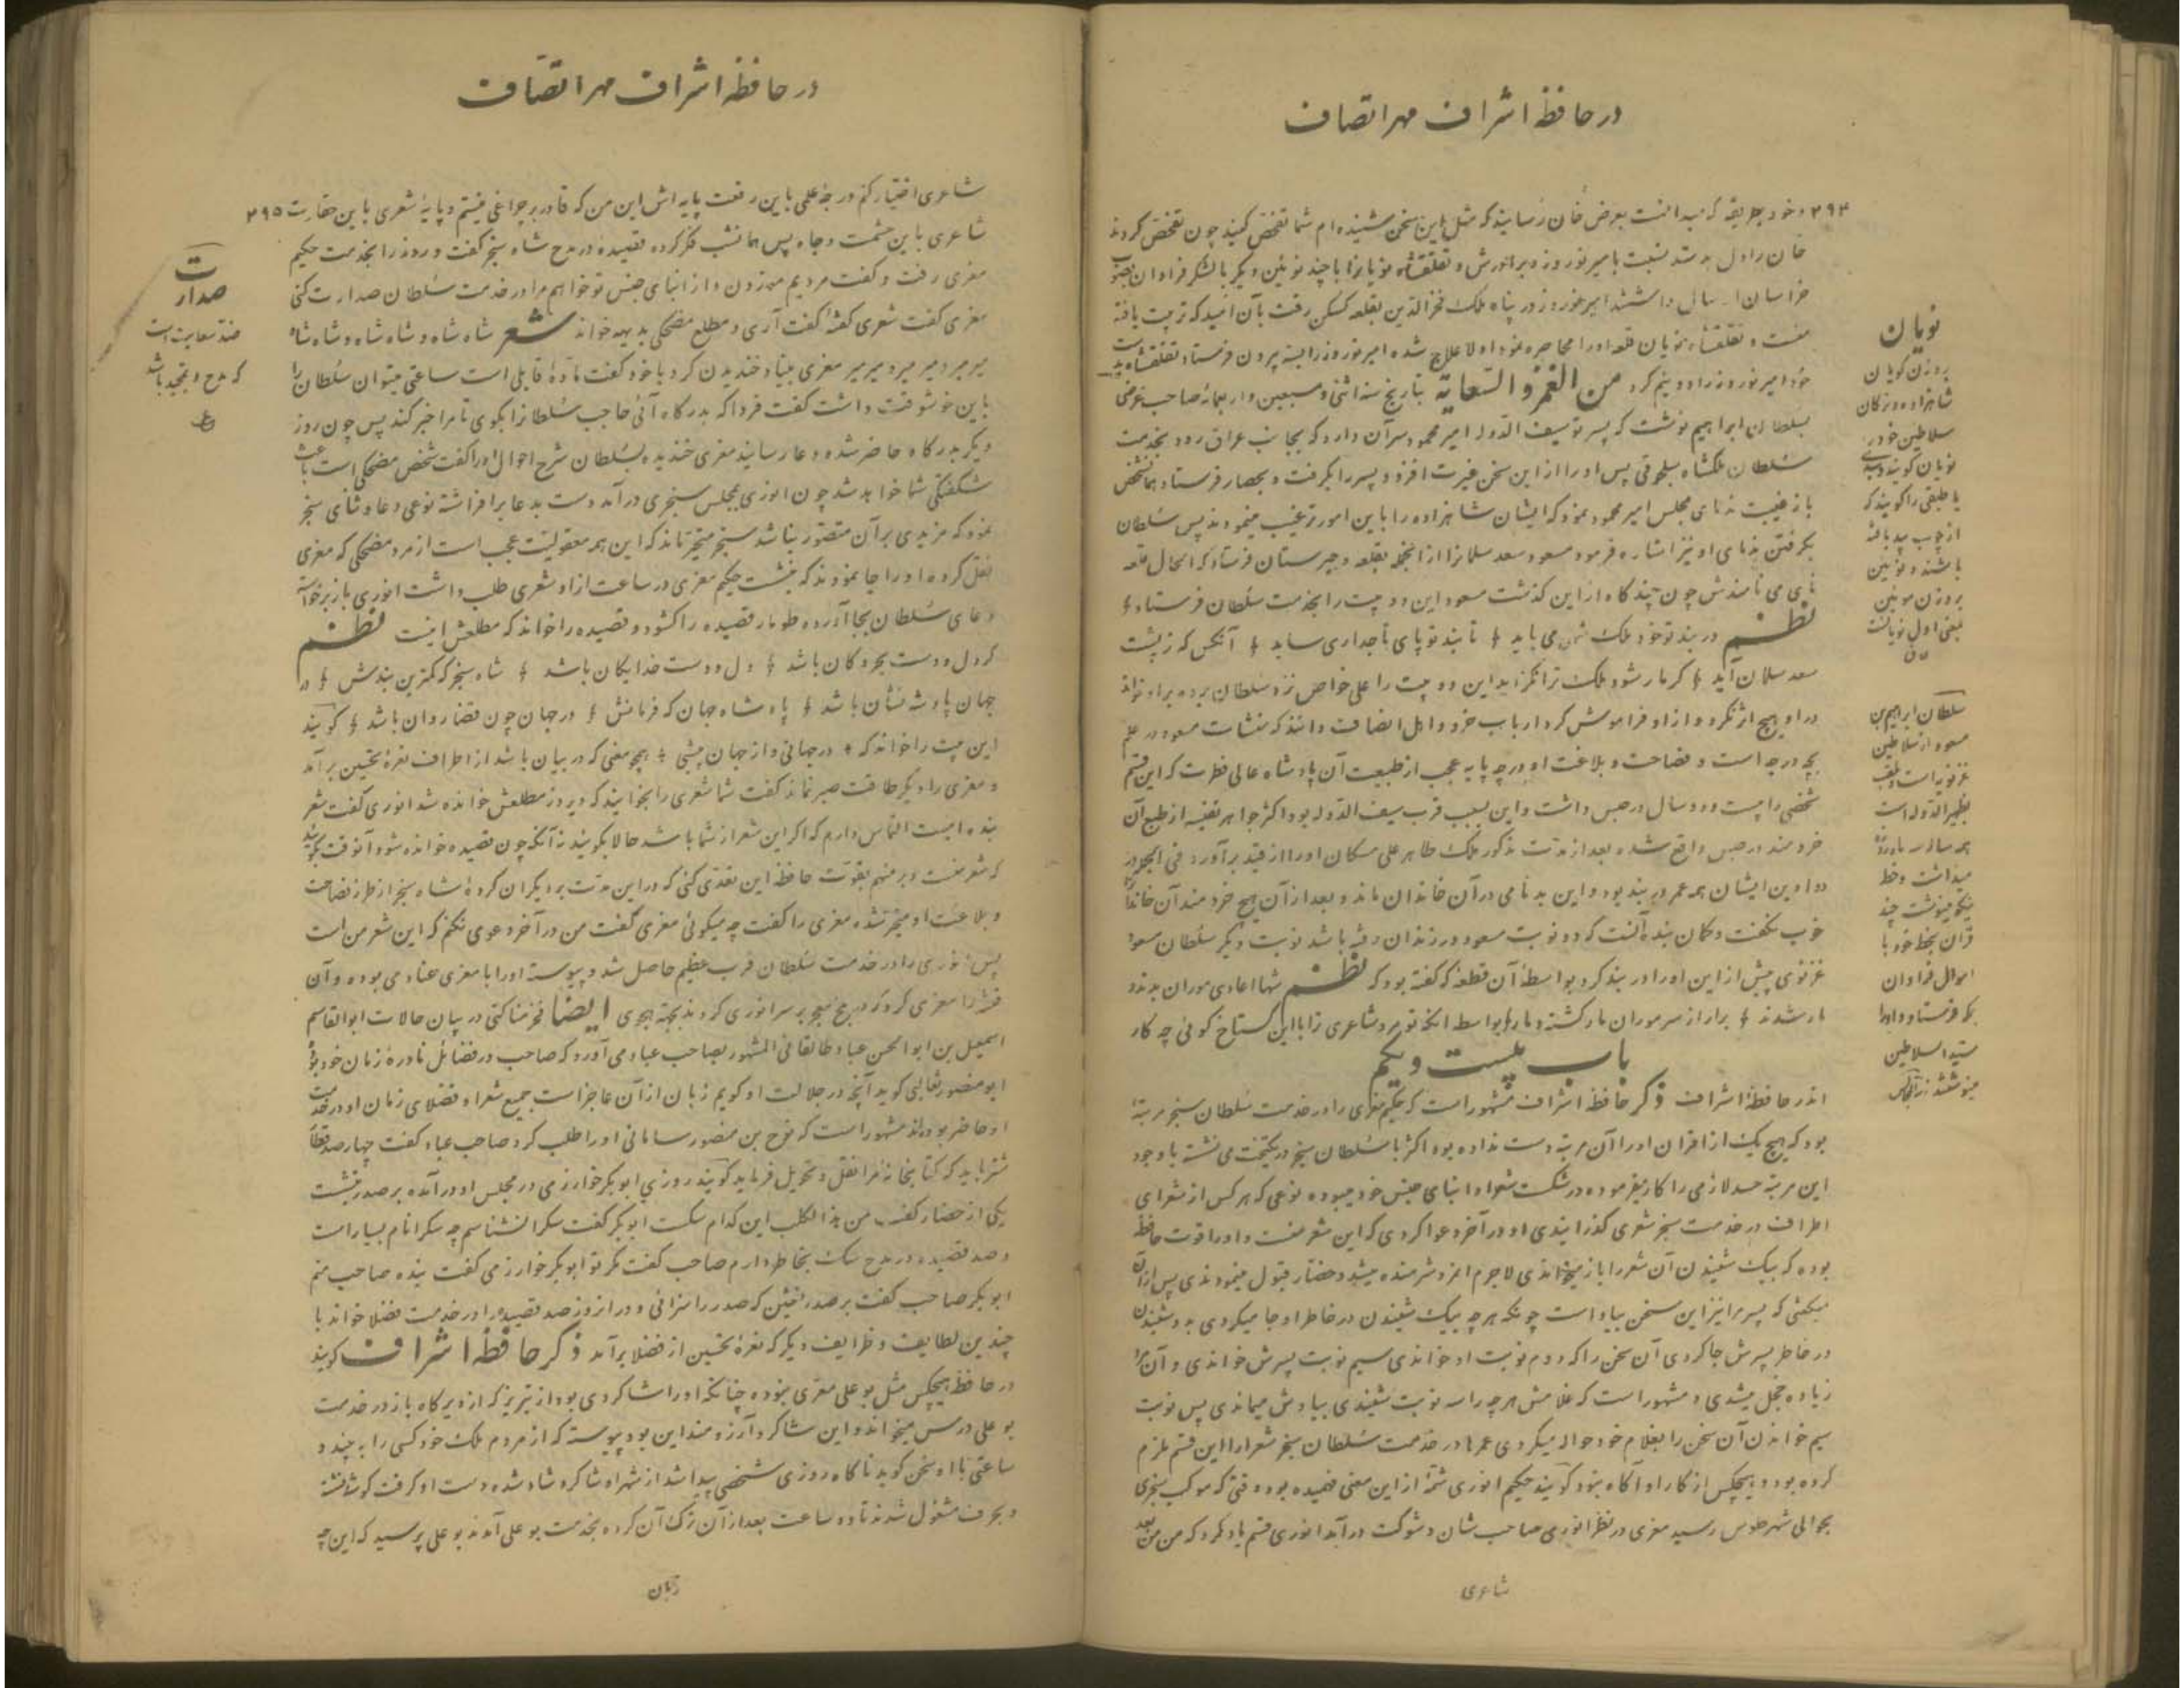 در حافظهٔ اشراف مهر اتصاف
۲۹۴ و خود بطریقه که میدانست بعرض خان رسانید که مثل این سخن شنیده ام شما تفحص کنید چون تفحص کردند
خان را دل بد شد نسبت با میر نوروز و برادرش و قتلغشاه نویانرا با چند نوئین دیگر با لشکر فراوان بصوب
خراسان ارسال داشتند امیر نوروز در پناه ملک فخرالدین بقلعه کسکن رفت بآن امید که تربیت یافته
منست و قتلغشاه نویان قلعه او را محاصره نمود اولا علاج شده امیر نوروز را بسته بیرون فرستاد قتلغشاه بدست
خود امیر نوروز را دو نیم کرد من الغمز و السعایة بتاریخ سنه اثنی و سبعین و اربعمائه صاحب غرضی
بسلطان ابراهیم نوشت که پسر تو سیف الدوله امیر محمود سر آن دارد که بجانب عراق رود بخدمت
سلطان ملکشاه سلجوقی پس او را از این سخن غیرت افزود پسر را بگرفت و بحصار فرستاد همانشخص
باز غیبت ندمای مجلس امیر محمود نمود که ایشان شاهزاده را باین امور ترغیب مینمودند پس سلطان
بگرفتن ندمای او نیز اشاره فرمود مسعود سعد سلمانرا از آنجمله بقلعه وجیرستان فرستاد که الحال قلعه
نای می نامندش چون چند گاه از این گذشت مسعود این دو بیت را بخدمت سلطان فرستاد
نظم در بند تو خود ملک شه می باید تا بند تو پای تاجداری ساید آنکس که ز پشت
سعد سلمان آید گر مار شود ملک ترا نگزاید این دو بیت را علی خاص نزد سلطان برده بر او خواند
در او هیچ اثر نکرد و از او فراموش کرد ارباب خرد و اهل انصاف دانند که منشات مسعود در علم
بچه درجه است و فصاحت و بلاغت او در چه پایه عجب از طبیعت آن پادشاه عالی فطرت که این قسم
شخصی را بیست و دو سال در حبس داشت و این بسبب قرب سیف الدوله بود اکثر جواهر نفیسه از طبع آن
خردمند در حبس واقع شده بعد از مدت مذکور ملک طاهر علی مسکان او را از قید برآورد فی الجمله در
دواوین ایشان همه عمر در بند بود و این بدنامی در آن خاندان ماند و بعد از آن هیچ خردمند آن خاندانرا
خوب نگفت و گمان بنده آنست که دو نوبت مسعود در زندان رفته باشد نوبت دیگر سلطان مسعود
غزنوی پیش از این او را در بند کرد بواسطهٔ آن قطعه که گفته بود که نظم شها اعادی موران بدند و
مار شدند برآر از سر موران مار گشته دمار بواسطه آنکه تو مرد شاعری ترا با این گستاخ گوئی چه کار
باب بیست و یکم
اندر حافظهٔ اشراف ذکر حافظه اشراف مشهور است که حکیم معزی را در خدمت سلطان سنجر مرتبهٔ
بود که هیچ یک از اقران او را آن مرتبه دست نداده بود اکثر با سلطان سنجر در یکتخت می نشسته با وجود
این مرتبه حسد لازمی را کار میفرموده در شکست شعرا و ابنای جنس خود میبوده نوعی که هر کس از شعرای
اطراف در خدمت سنجر شعری گذرانیدی او در آخر دعوا کردی که این شعر منست و او را قوت حافظه
بوده که بیک شنیدن آن شعر را باز میخواندی لاجرم آنمرد شرمنده میشد و حضار قبول مینمودندی پس از آن
میگفتی که پسر مرا نیز این سخن بیاد است چونکه هر چه بیک شنیدن در خاطر او جا میکردی بدو شنیدن
در خاطر پسرش جا کردی آن سخن را که دوم نوبت او خواندی سیم نوبت پسرش خواندی و آن مرد
زیاده خجل میشدی و مشهور است که غلامش هر چه را سه نوبت شنیدی بیادش میماندی پس نوبت
سیم خواندن آن سخن را بغلام خود حواله میکردی عمرها در خدمت سلطان سنجر شعرا را این قسم ملزم
کرده بود و هیچکس از کار او آگاه نبود گویند حکیم انوری شمهٔ از این معنی فهمیده بود وقتی که موکب سنجری
بحوالی شهر طوس رسید معزی در نظر انوری صاحب شان و شوکت درآمد انوری قسم یاد کرد که من من بعد
شاعری
نویان
بروزن گویان
شاهزاده و ترکان
سلاطین خود را
نویان گویند و سبدی
یا طبقی را گویند که
از چوب بید بافته
باشند و نوئین
بروزن موئین
بمعنی اول نویانست
سلطان ابراهیم بن
مسعود از سلاطین
غزنویه است ملقب
بظهیرالدوله است
همه ساله سه ماه روزه
میداشت و خط
نیکو مینوشت چند
قرآن بخط خود با
اموال فراوان
بمکه فرستاد و او را
سیدالسلاطین
مینوشتند
در حافظهٔ اشراف مهر اتصاف
شاعری اختیار کنم درجهٔ علمی باین رفعت پایه اش این من که قادر بر چراغی نیستم و پایهٔ شعری باین حقارت ۲۹۵
شاعری باین حشمت و جاه پس همانشب فکر کرده قصیده در مدح شاه سنجر گفت و روز را بخدمت حکیم
معزی رفت و گفت مردیم موزون و از ابنای جنس تو خواهم مرا در خدمت سلطان صدارت کنی
معزی گفت شعری گفتهٔ گفت آری و مطلع مضحکی بدیهه خواند شعر شاه شاه و شاه شاه و شاه شاه
میر میر و میر میر و میر میر معزی بنیاد خندیدن کرد با خود گفت مادهٔ قابلی است ساعتی میتوان سلطان را
باین خوشوقت داشت گفت فردا که بدرگاه آئی حاجب سلطانرا بگوی تا مرا خبر کند پس چون روز
دیگر بدرگاه حاضر شده دعا رسانید معزی خندیده بسلطان شرح احوال او را گفت شخص مضحکی است باعث
شکفتگی شما خواهد شد چون انوری بمجلس سنجری درآمد دست بدعا برافراشته نوعی دعا و ثنای سنجر
نمود که مزیدی بر آن متصور نباشد سنجر متحیر ماند که این همه معقولیت عجب است از مرد مضحکی که معزی
نقل کرده او را جا نمودند که بنشست حکیم معزی در ساعت از او شعری طلب داشت انوری باز برخواسته
دعای سلطان بجا آورده طومار قصیده را گشود و قصیده را خواند که مطلعش اینست نظم
گر دل و دست بحر و کان باشد دل و دست خدایگان باشد شاه سنجر که کمترین بندش در
جهان پادشه نشان باشد پادشاه جهان که فرمانش در جهان چون قضا روان باشد گویند
این بیت را خواند که در جهانی و از جهان بیشی همچو معنی که در بیان باشد از اطراف نعرهٔ تحسین برآمد
و معزی را دیگر طاقت صبر نماند گفت شما شعری را بخوانید که دیروز مطلعش خوانده شد انوری گفت شعر
بنده اینست التماس دارم که اگر این شعر از شما باشد حالا بگویند نه آنکه چون قصیده خوانده شود آنوقت بگویند
که شعر منست و بر منهم بقوت حافظه این تعدی کنی که در این مدت بر دیگران کردهٔ شاه سنجر از طرز فصاحت
و بلاغت او متحیر شده معزی را گفت چه میگوئی معزی گفت من در آخر دعوی نکنم که این شعر من است
پس انوری را در خدمت سلطان قرب عظیم حاصل شد و پیوسته او را با معزی عناد می بوده و آن
ایضا فخر بناکتی در بیان حالات ابوالقاسم
اسمعیل بن ابوالحسن عباد طالقانی المشهور بصاحب عباد می آورد که صاحب در فضائل نادرهٔ زمان خود بوده
ابو منصور ثعالبی گوید آنچه در جلالت او گویم زبان از آن عاجز است جمیع شعرا و فضلای زمان او در خدمت
او حاضر بوده اند مشهور است که نوح بن منصور سامانی او را طلب کرد صاحب عباد گفت چهارصد قطار
شتر باید که کتابخانهٔ مرا نقل و تحویل فرماید گویند روزی ابوبکر خوارزمی در مجلس او درآمده بر صدر بنشست
یکی از حضار گفت من هذا الکلب این کدام سگست ابوبکر گفت سگرا نشناسم چه سگرا نام بسیار است
و صد قصیده در مدح سگ بخاطر دارم صاحب گفت مگر تو ابوبکر خوارزمی گفت بنده صاحب منم
ابوبکر صاحب گفت بر صدر نشین که صدر را سزائی و در آنروز صد قصیده را در خدمت فضلا خواند با
چندین لطایف و ظرایف دیگر که نعرهٔ تحسین از فضلا برآمد ذکر حافظهٔ اشراف گویند
در حافظه هیچکس مثل بوعلی معزی نبوده چنانکه او را شاگردی بود از تبریز که از دیرگاه باز در خدمت
بوعلی درس میخواند و این شاگرد آرزومند این بود پیوسته که از مردم ملک خود کسی را به بیند و
ساعتی با او سخن گوید ناگاه روزی شخصی پیدا شد از شهر او شاگرد شاد شده دست او گرفت گوشه نشسته
و بحرف مشغول شدند تا دو ساعت بعد از آن ترک آن کرده بخدمت بوعلی آمدند بوعلی پرسید که این چه
زبان
صدارت
ضد سعایت است
که مدح و تمجید باشد